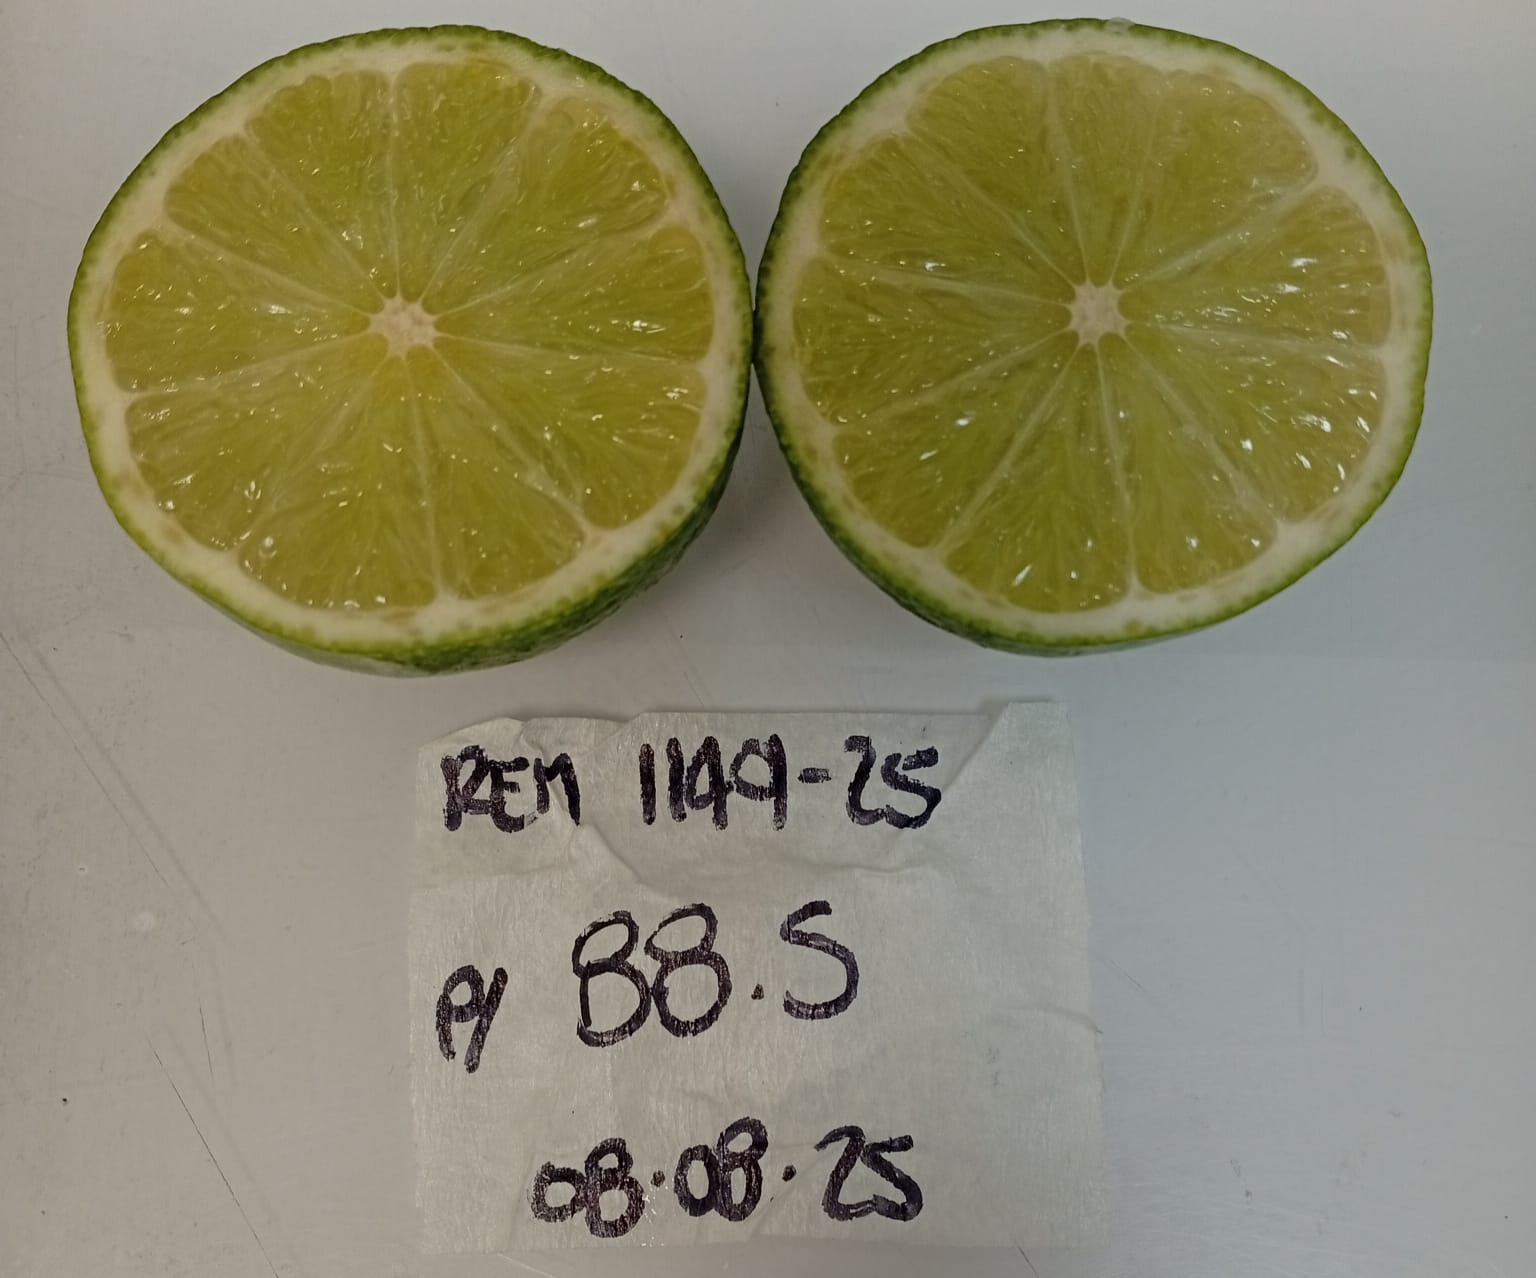 REM 1149-25
P/ 88.5
08.08.25